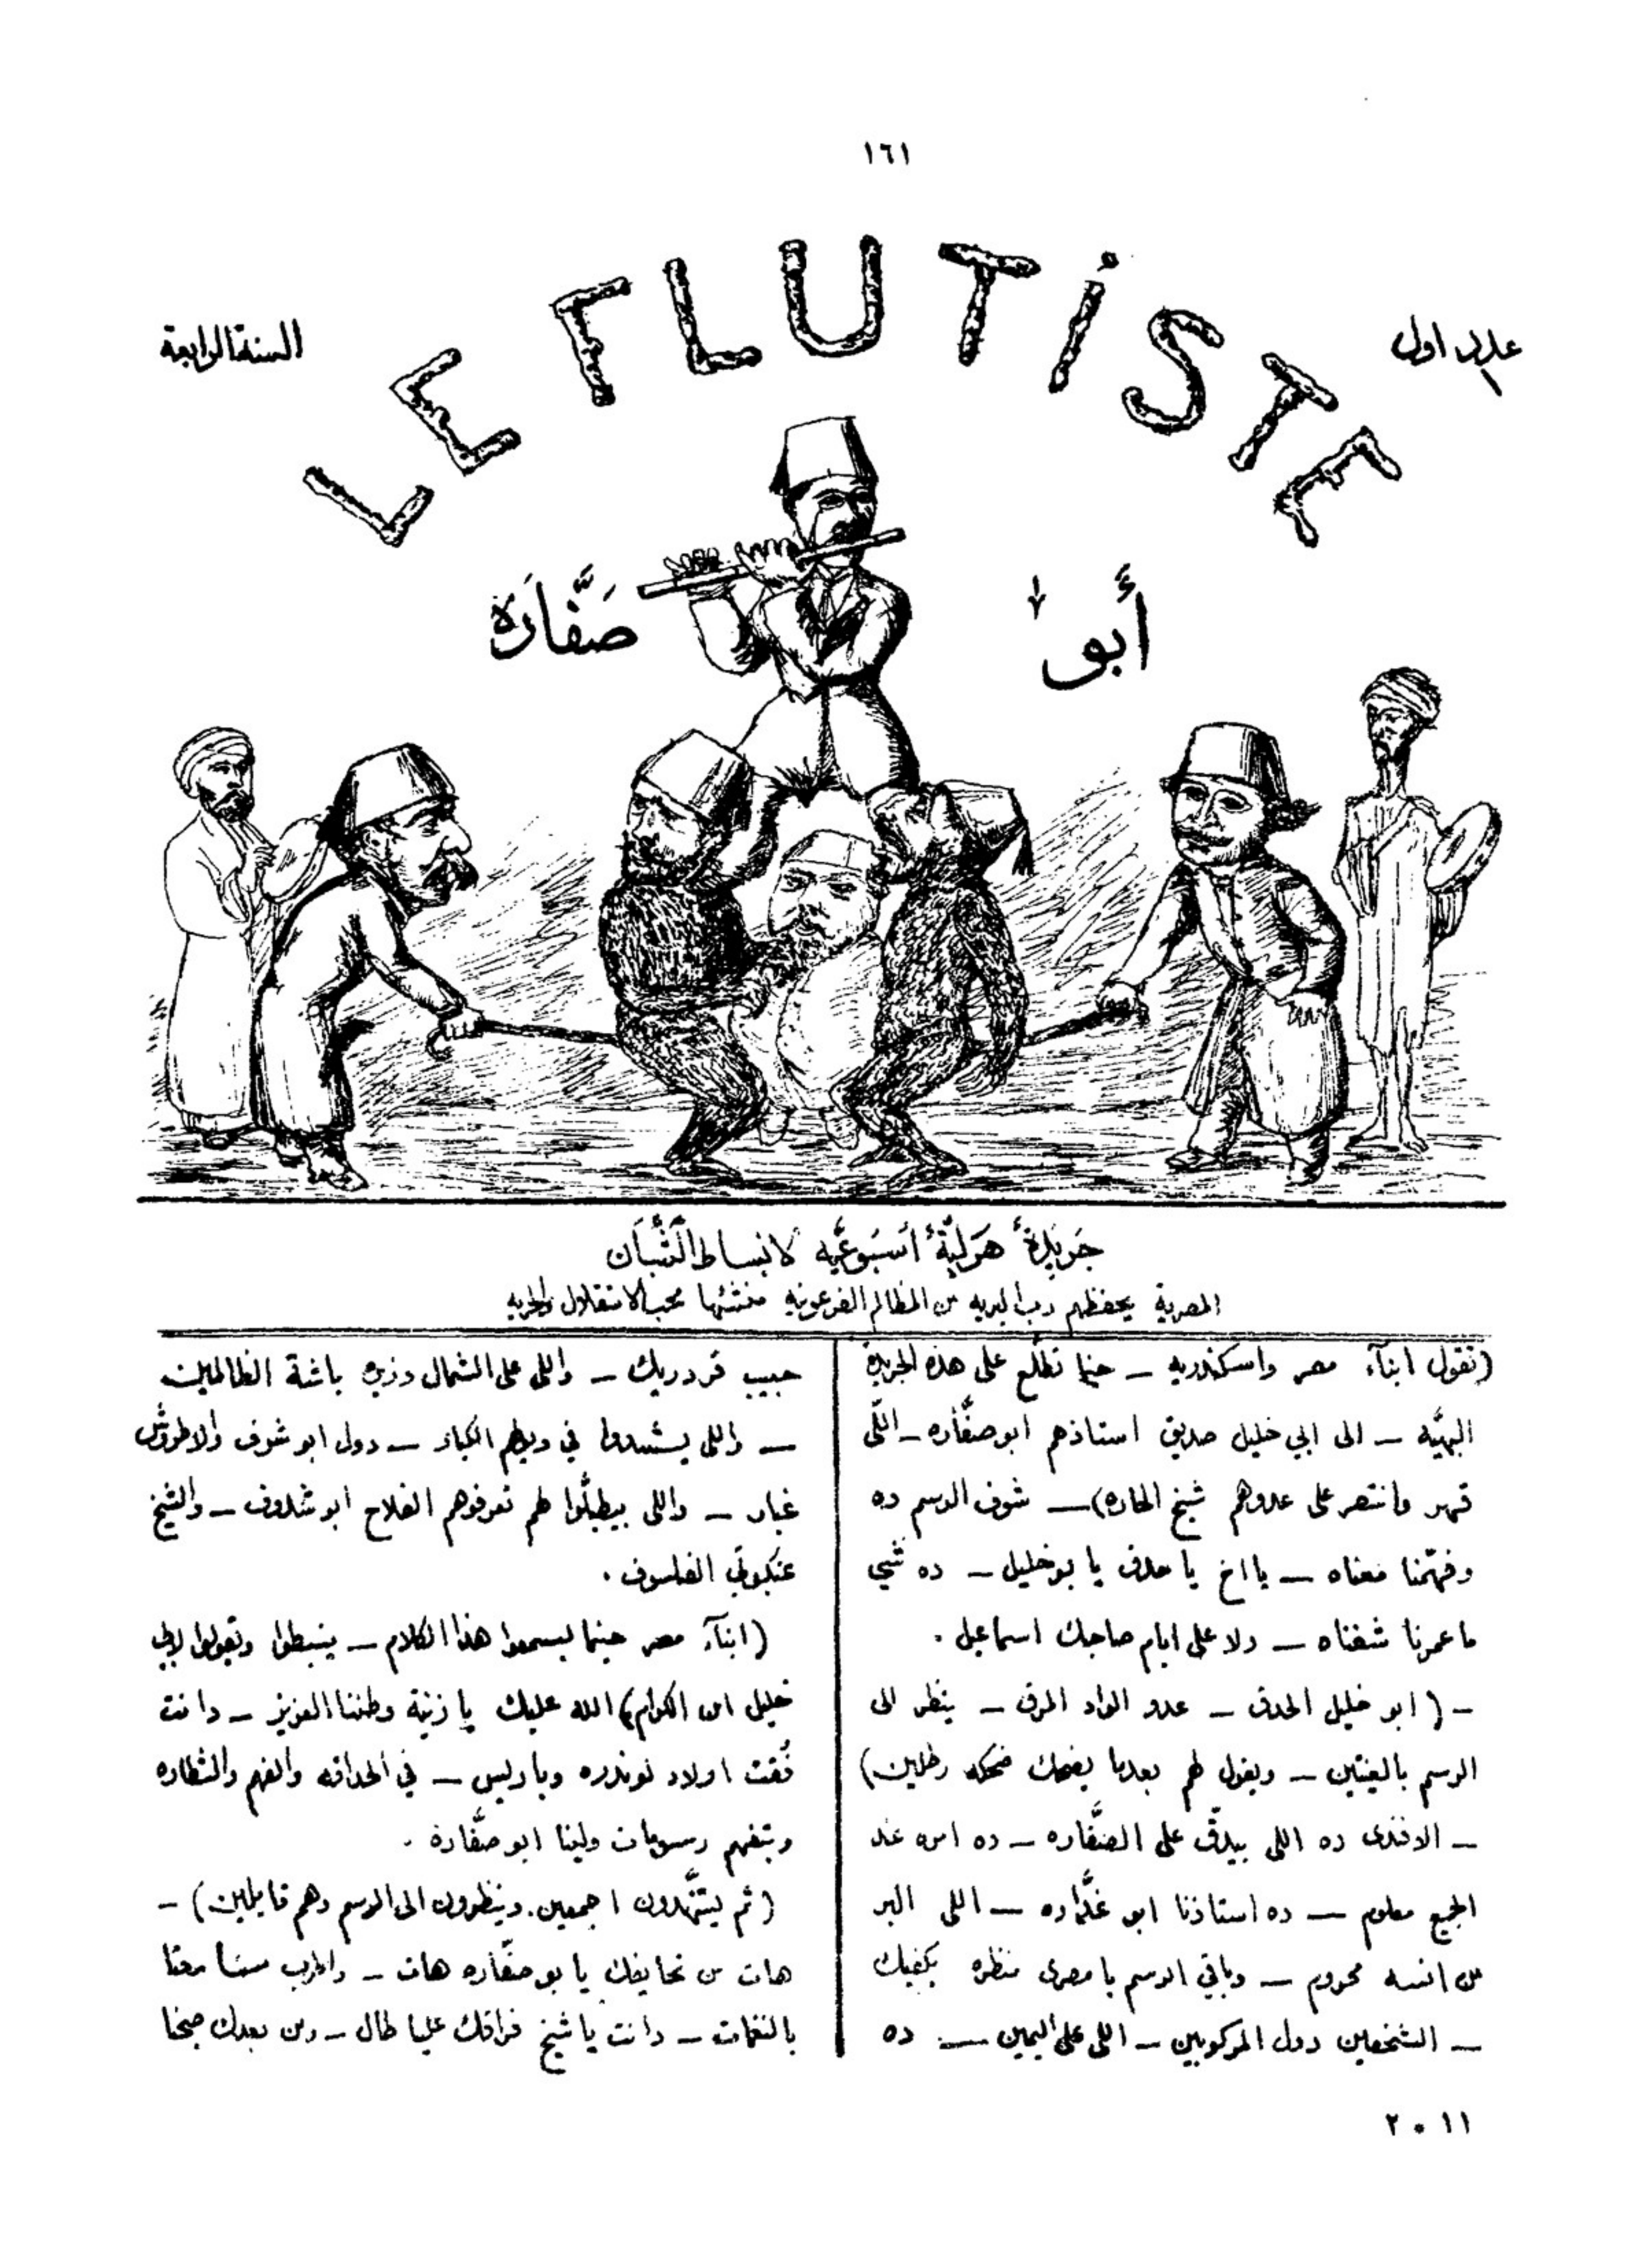 ١٦١
LE FLUTISTE
عدد اول
السنة الرابعة
أبو صَفَّارَة
جَريدَةٌ هَزليَّةٌ أُسبُوعيَّه لانبساط الشُّبَّان
المصرية يحفظهم رب البريه من المظالم الفرعونيه منشئها محب الاستقلال والحريه
(تقول ابنآء مصر واسكندريه – حينما تطلع على هذه الجريدة
البهيَّه – الى ابي خليل صديق استاذهم ابو صفَّاره – اللّى
قهر وانتصر على عدوهم شيخ الحاره) – شوف الرسم ده
وفهّمنا معناه – يا اخ يا حدق يا بو خليل – ده شي
ما عمرنا شفناه – ولا على ايام صاحبك اسماعيل .
– (ابو خليل الحدق – عدو الواد المرق – ينظر الى
الرسم بالعينين – ويقول لهم بعدما يضحك ضحكه رطلين)
– الافندى ده اللى بيدقّ على الصفَّاره – ده امره عند
الجميع معلوم – ده استاذنا ابو – اللى البر
من انسه محروم – وباقي الرسم يا مصرى منظره يكفيك
– الشخصين دول المركوبين – اللى على اليمين – ده
حبيب فردريك – واللى على الشمال وزيره باشة الظالمين
– واللى في الكبار – دول ابو شوف والاطروش
غبار – واللى بيطبلّوا لهم تعرفوهم الفلاح ابو شادوف – والشيخ
عنكبوتي الفلسوف .
(ابنآء مصر حينما يسمعوا هذا الكلام – ينبسطوا ويقولوا لابي
خليل ابن الكرام) الله عليك يا زينة وطننا العزيز – دا انت
فُقت اولاد لوندره وباريس – في الحداقه والفهم والشطاره
وبتفهم رسومات ولينا ابو صفَّارة .
(ثم يتنَّهدون اجمعين. وينظرون الى الرسم وهم قايلين) –
هات من تحايفك يا بو صفَّاره هات –
بالنغمات – دا انت يا شيخ فراقك علينا طال – ومن بعدك
١١ • ٢